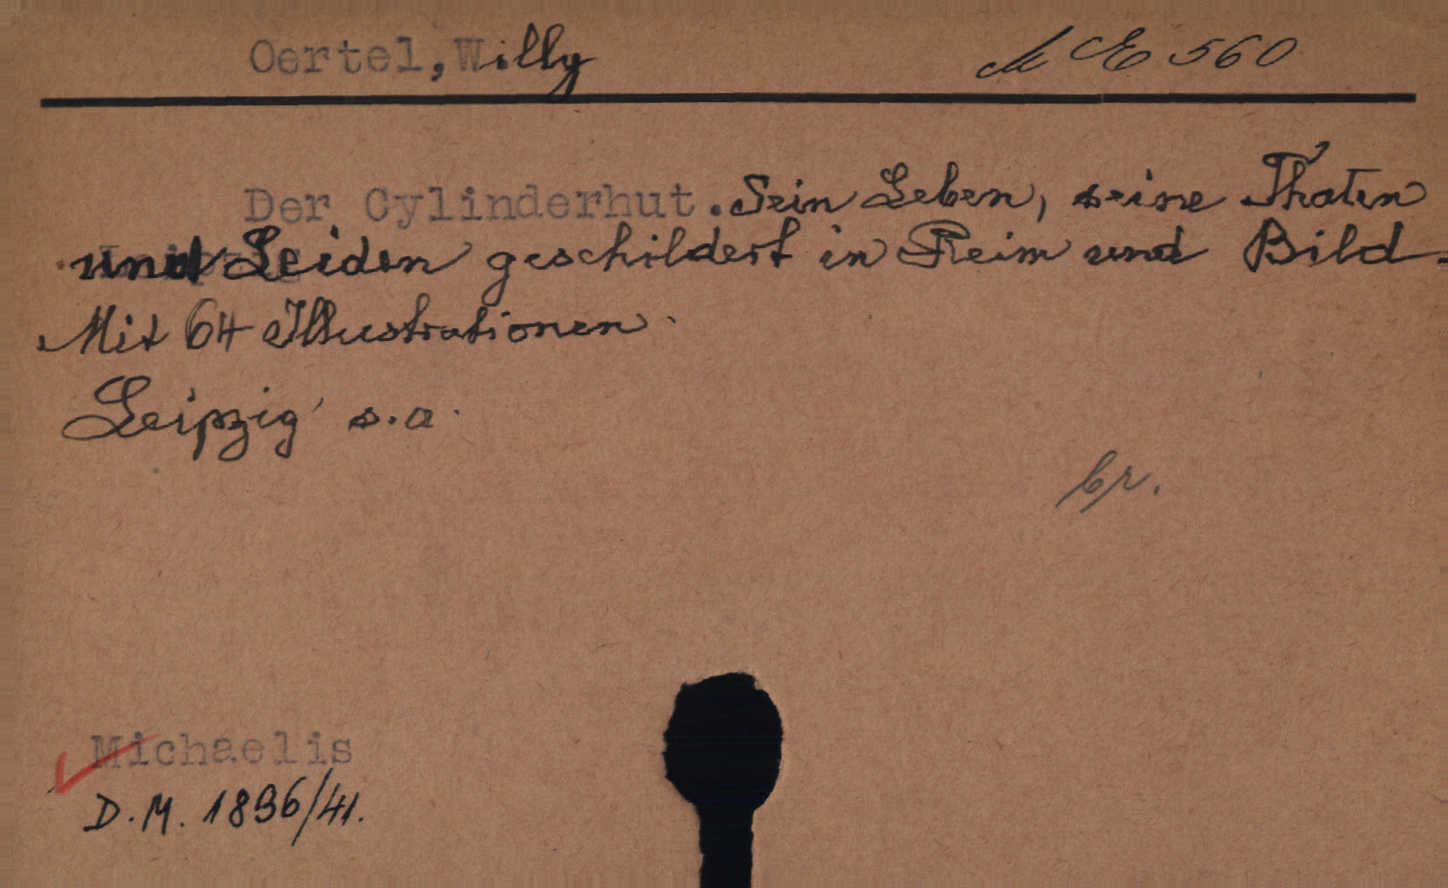 Oertel, Willy
M E 560
Der Cylinderhut. Sein Leben, seine Thaten
und Leiden geschildert in Reim und Bild.
Mit 64 Illustrationen.
Leipzig s.a.
br.
Michaelis
D.M. 1896/41.